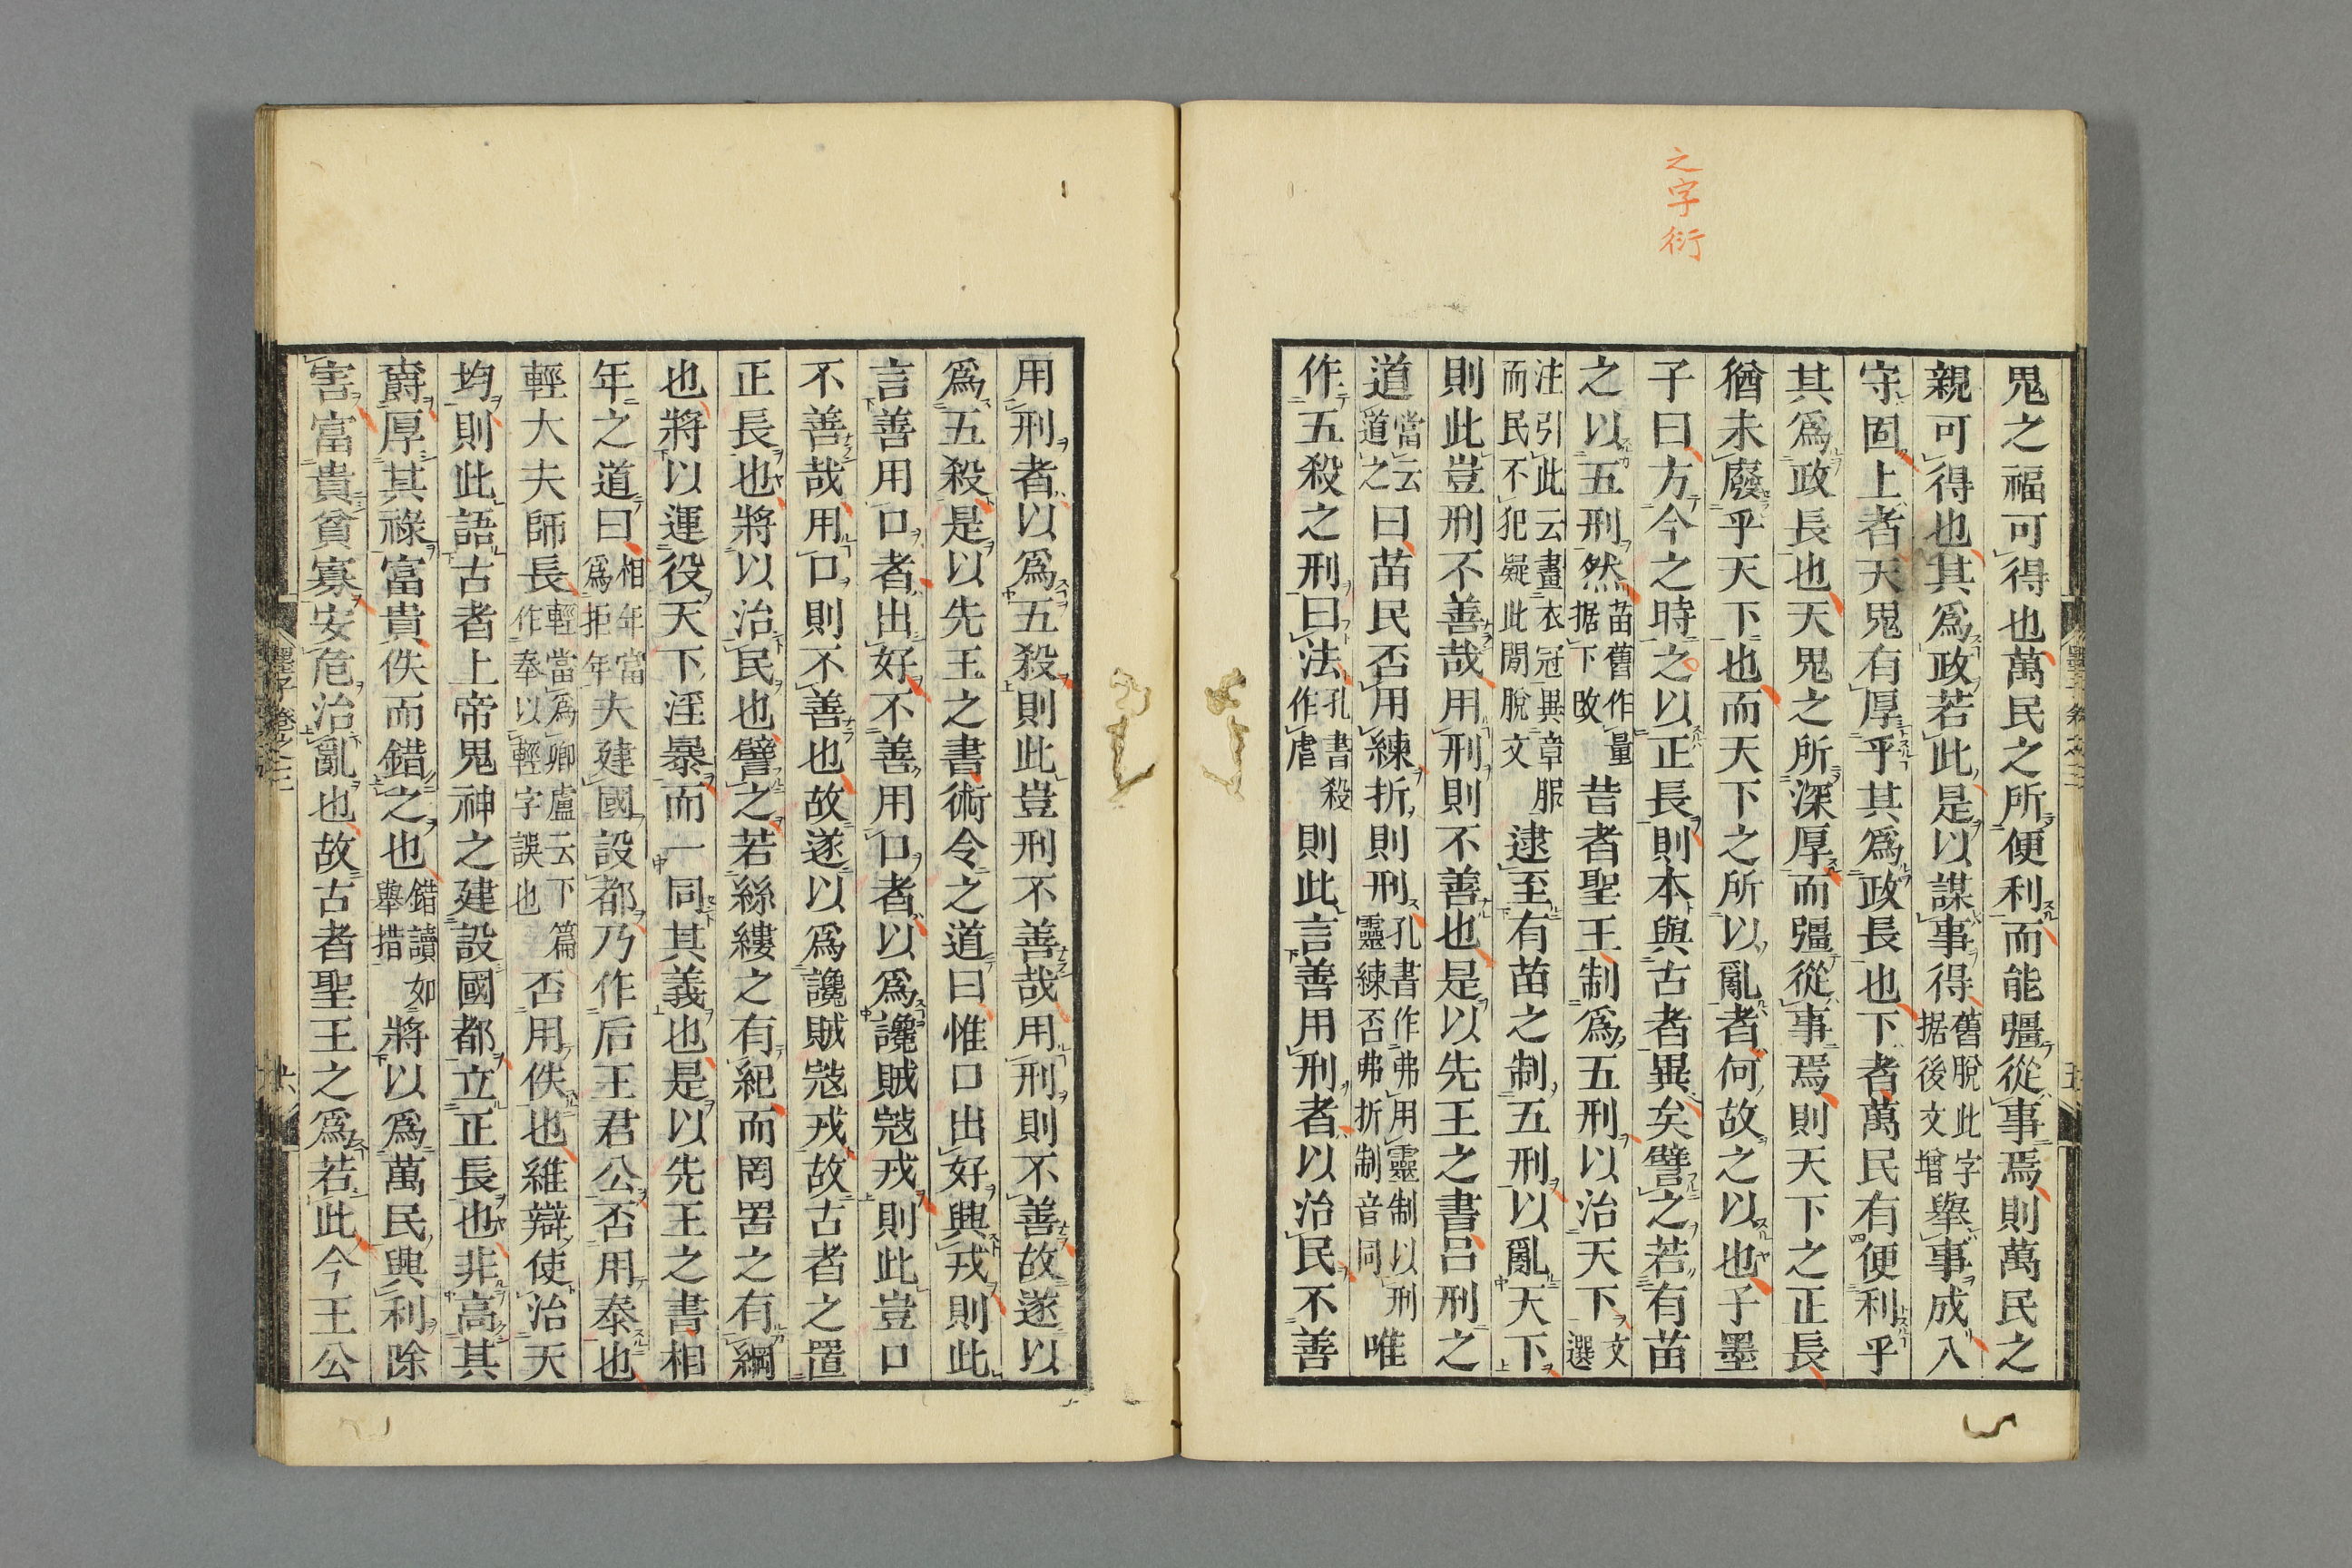 之字衍
鬼之福可得也萬民之所便利而能彊從事焉則萬民之
親可得也其爲政若此是以謀事得舊脫此字据後文增舉事成入
守固上者天鬼有厚乎其爲政長也下者萬民有便利乎
其爲政長也天鬼之所深厚而彊從事焉則天下之正長
猶未廢乎天下也而天下之所以亂者何故之以也子墨
子曰方今之時之以正長則本與古者異矣譬之若有苗
之以五刑然苗舊作量据下改昔者聖王制爲五刑以治天下文選
注引此云畫衣冠異章服而民不犯疑此閒脫文逮至有苗之制五刑以亂天下
則此豈刑不善哉用刑則不善也是以先王之書呂刑之
道當云道之曰苗民否用練折則刑孔書作弗用靈制以刑靈練否弗折制音同唯
作五殺之刑曰法孔書殺作虐則此言善用刑者以治民不善
用刑者以爲五殺則此豈刑不善哉用刑則不善故遂以
爲五殺是以先王之書術令之道曰惟口出好興戎則此
言善用口者出好不善用口者以爲讒賊寇戎則此豈口
不善哉用口則不善也故遂以爲讒賊寇戎故古者之置
正長也將以治民也譬之若絲縷之有紀而罔罟之有綱
也將以運役天下淫暴而一同其義也是以先王之書相
年之道曰相年當爲拒年夫建國設都乃作后王君公否用泰也
輕大夫師長輕當爲卿盧云下篇作奉以輕字誤也否用佚也維辯使治天
均則此語古者上帝鬼神之建設國都立正長也非高其
爵厚其祿富貴佚而錯之也錯讀如舉措將以爲萬民興利除
害富貴貧寡安危治亂也故古者聖王之爲若此今王公